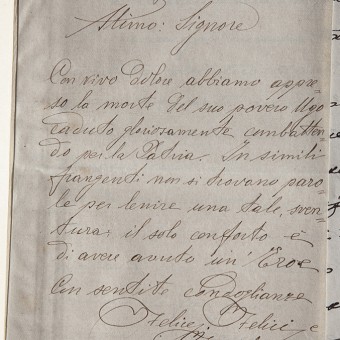 Ilimo: Signore
Con vivo dolore abbiamo appre-
so la morte del suo povero Ugo
caduto gloriosamente combatten-
do per la Patria. In simili
frangenti non si trovano paro-
le per lenire una tale sven-
tura: il solo conforto è
di avere avuto un' Eroe
Con sentite condoglianze
Felice Felici e